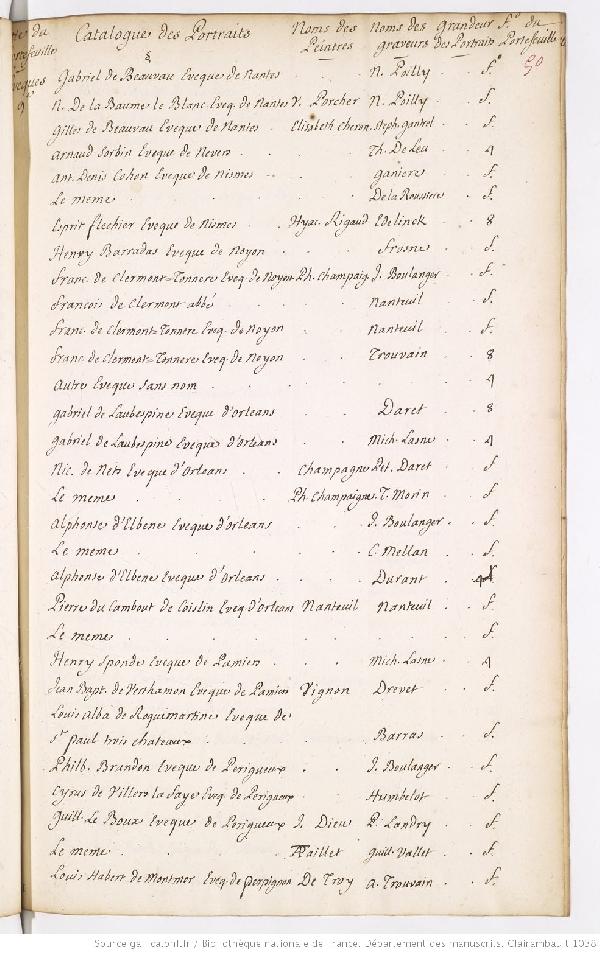 Catalogue des Portraits Noms des Peintres noms des graveurs Grandeur des Portraits f.o du Portefeuille
50
Gabriel de Beauvau Eveque de Nantes n. Poilly f.o
N. De la Baume le Blanc Eveq. de Nantes V. Porcher n. Poilly f.
Gilles de Beauvau Eveque de Nantes Elisabeth Cheron Steph. gantrel f.
Arnaud Sorbin Eveque de Nevers Th. De Leu 4
Ant. Denis Cohon Eveque de Nismes ganiere f.
Le meme De la Roussiere f.
Esprit flechier Eveque de Nismes Hyac. Rigaud Edelinck 8
Henry Barradas Eveque de Noyon fresne f.
franc. de Clermont-Tonnere Eveq. de Noyon Ph. Champaig. J. Boulanger f.
francois de Clermont abbé nanteuil f.
franc. de Clermont-Tonnere Eveq. de Noyon nanteuil f.
franc. de Clermont-Tonnere Eveq. de Noyon Trouvain 8
autre Eveque sans nom 4
gabriel de Laubespine Eveque d'orleans Daret 8
gabriel de Laubespine Eveque d'orleans Mich. Lasne 4
Nic. de Nets Eveque d'Orleans Champagne Pet. Daret f
Le meme Ph. Champaigne T. Morin f
alphonse d'Elbene Eveque d'orleans J. Boulanger f.
Le meme C. Mellan f.
alphonse d'Elbene Eveque d'Orleans Durant 4
Pierre du Cambout de Coislin Eveq. d'orleans Nanteuil Nanteuil f.
Le meme f.
Henry Sponde Eveque de Pamiers Mich. Lasne 4
Jean Bapt. de Verthamon Eveque de Pamiers Vignon Drevet f.
Louis Alba de Roquimartine Eveque de
St. paul trois chateaux Barras f.
Philb. Brandon Eveque de Perigueux J. Boulanger f.
Cyrus de Villers la faye Eveq. de Perigueux Humbelot f.
guill. Le Boux Eveque de Perigueux J. Dieu P. Landry f.
Le meme Paillet guill. Vallet f.
Louis Habert de Montmor Eveq. de perpignan De Troy a. Trouvain f.
Source gallica.bnf.fr / Bibliothèque nationale de France. Département des manuscrits. Clairambault 1038